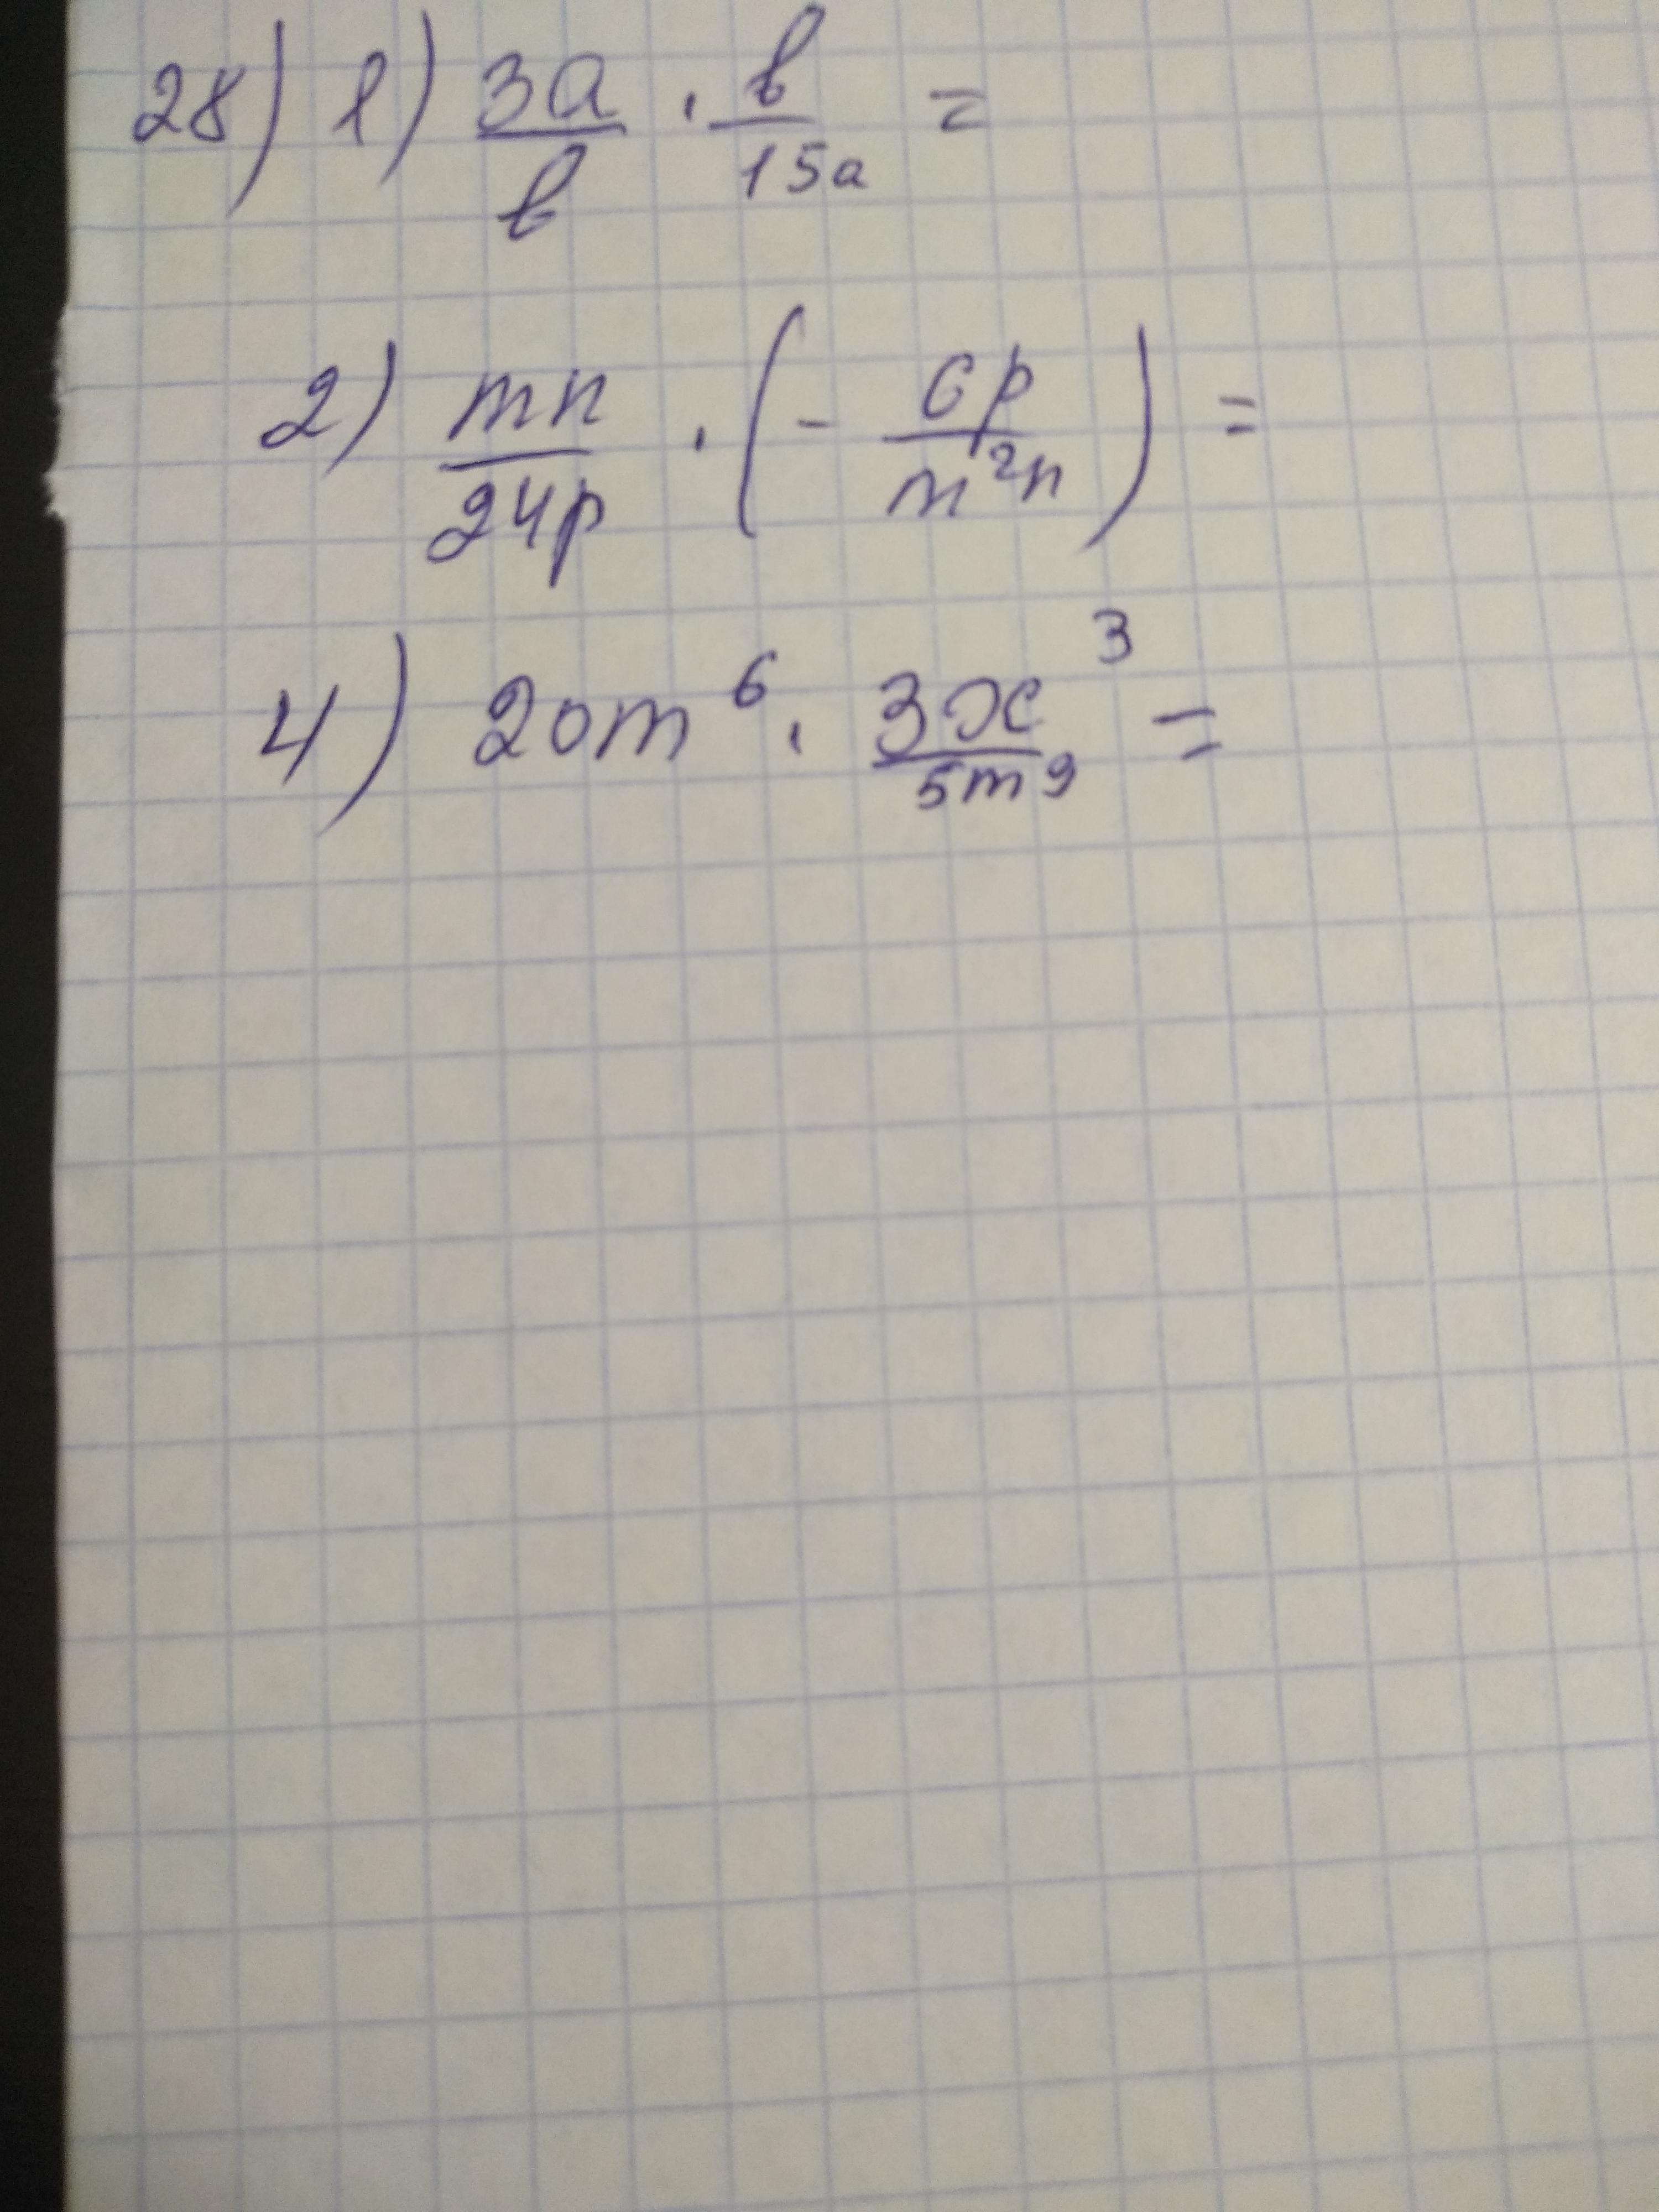 28) 1) 3a/b · b/15a =
2) mn/24p · (- cp/m²n) =
4) 20m⁶ · 3x³/5m⁹ =